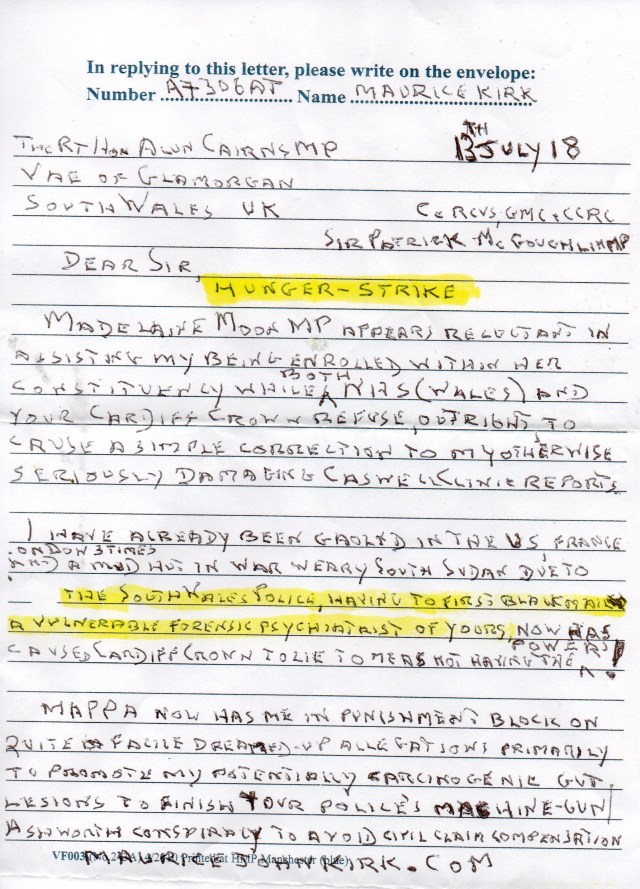 In replying to this letter, please write on the envelope:
Number A7306AT Name MAURICE KIRK
THE RT HON ALUN CAIRNS MP 13TH JULY 18
VAE OF GLAMORGAN
SOUTH WALES UK Cc RCVS, GMC + CCRC
SIR PATRICK McGOUGHLIN MP
DEAR SIR,
HUNGER-STRIKE
MADELAINE MOON MP APPEARS RELUCTANT IN
ASSISTING MY BEING ENROLLED WITHIN HER
CONSTITUENCY WHILE BOTH NHS (WALES) AND
YOUR CARDIFF CROWN REFUSE, OUTRIGHT, TO
CAUSE A SIMPLE CORRECTION TO MY OTHERWISE
SERIOUSLY DAMAGING CASWELL CLINIC REPORTS
I HAVE ALREADY BEEN GAOLED IN THE US, FRANCE
LONDON 3 TIMES
AND A MUD HUT IN WAR WEARY SOUTH SUDAN DUE TO
THE SOUTH WALES POLICE, HAVING TO FIRST BLACKMAIL
A VULNERABLE FORENSIC PSYCHIATRIST OF YOURS, NOW HAS
CAUSED CARDIFF CROWN TO LIE TO ME AS NOT HAVING THE POWERS!
MAPPA NOW HAS ME IN PUNISHMENT BLOCK ON
QUITE FACILE DREAMED-UP ALLEGATIONS PRIMARILY
TO PROMOTE MY POTENTIALLY CARCINOGENIC GUT
LESIONS TO FINISH YOUR POLICE'S MACHINE-GUN/
ASHWORTH CONSPIRACY TO AVOID CIVIL CLAIM COMPENSATION
VF003 Printed at HMP Manchester (blue)
MAURICEJOHNKIRK.COM